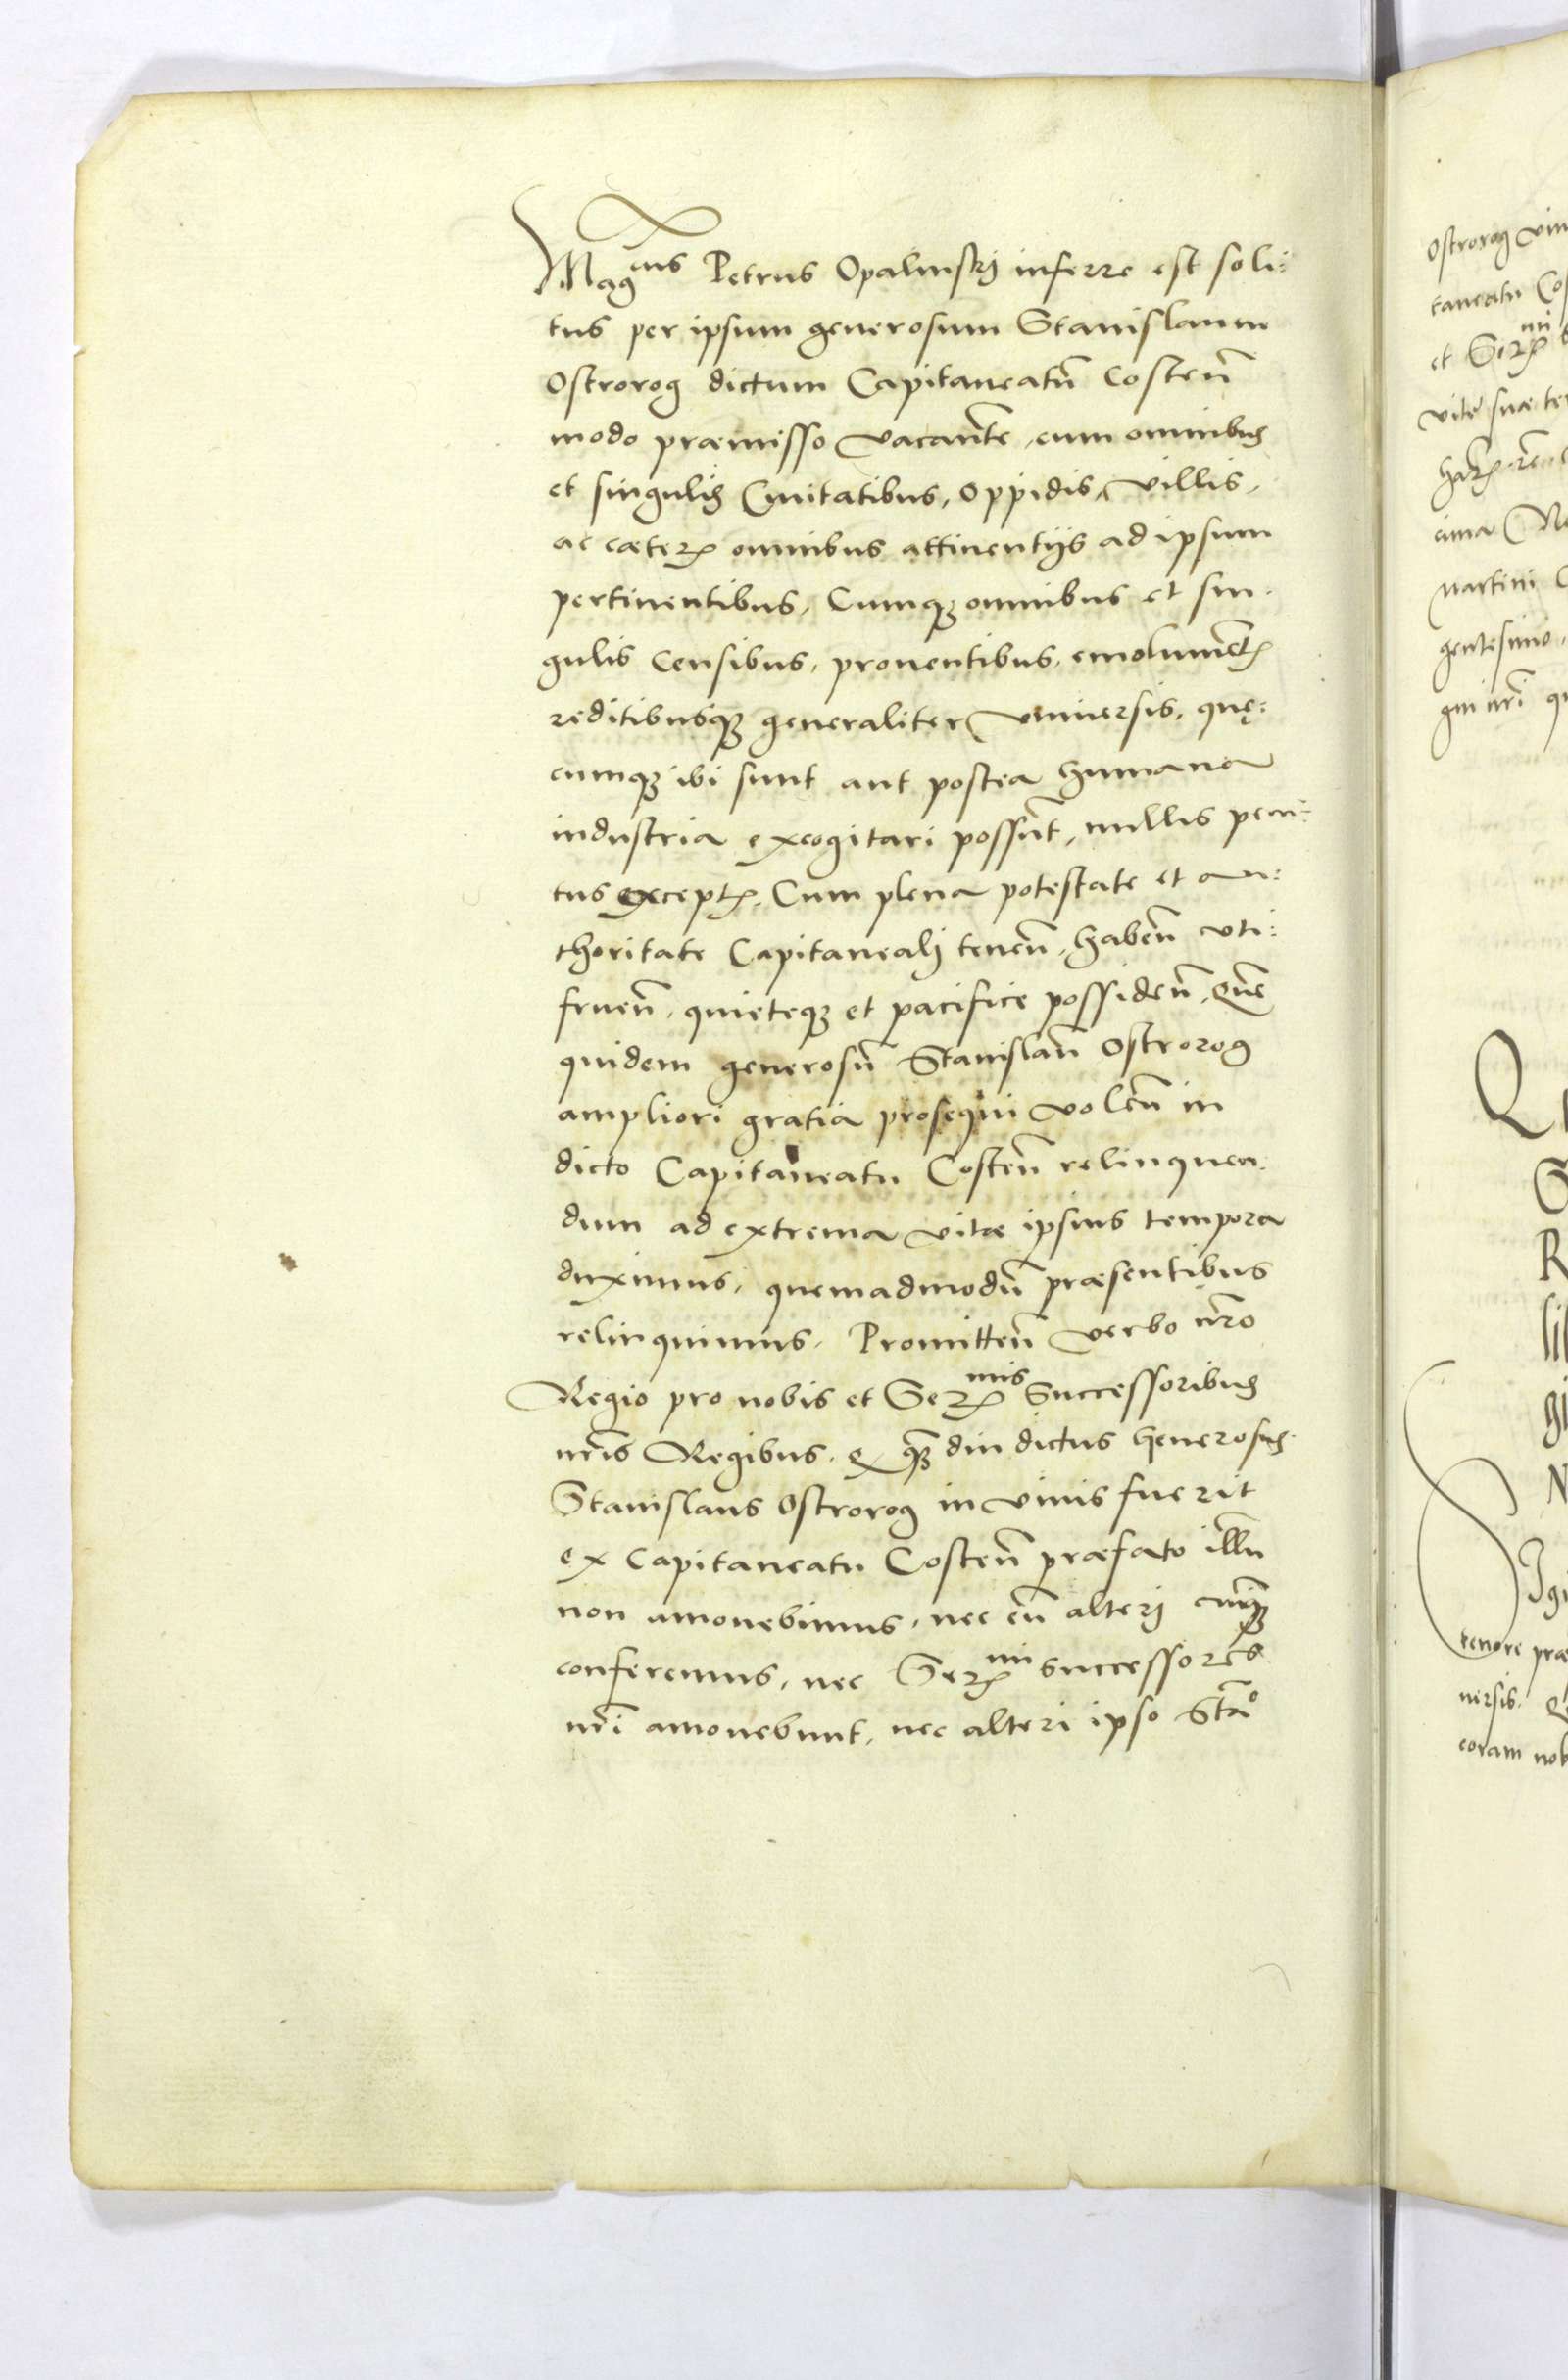 Mag^cus Petrus Opalinskj inferre est soli:
tus per ipsum generosum Stanislaum
Ostrorog dictum Capitaneatū Costen̄
modo præmisso vacante, cum omnibus
et singulis Ciuitatibus, oppidis, villis,
ac cæteꝝ omnibus attinentijs ad ipsum
pertinentibus, Cumqꝫ omnibus et sin:
gulis censibus, prouentibus, emolumētꝭ
reditibusqꝫ generaliter vniuersis, quę:
cumqꝫ ibi sunt aut postea humana
industria excogitari possūt, nullis peni:
tus exceptꝭ, Cum plena potestate et au:
thoritate Capitanealj tenen̄, haben̄ vti:
fruen̄, quieteqꝫ et pacifice possiden̄, Quē
quidem generosū Stanislaū Ostrorog
ampliori gratia prosequi volen̄ in
dicto Capitaneatu Costen̄ relinquen:
dum ad extrema vitæ ipsius tempora
duximus, quemadmodū præsentibus
relinquimus, Promitten̄ verbo nr̄o
Regio pro nobis et Serꝭ^mis Successoribus
nr̄is Regibus, qꝫ qꝫdiu dictus generosus
Stanislaus Ostrorog in viuis fuerit
ex Capitaneatu Costen̄ præfato illū
non amouebimus, nec eū alteri cuiqꝫ
conferemus, nec Serꝭ^mi successores
nr̄i amouebunt, nec alteri ipso Sta^o
Ostrorog viu
taneatu Cos
et Serꝭ^mi
vitæ suæ te
cima
martini C
gentesimo,
gni nr̄i qu
Q
S
R
N
tenore præ
uersis. Q
coram nob